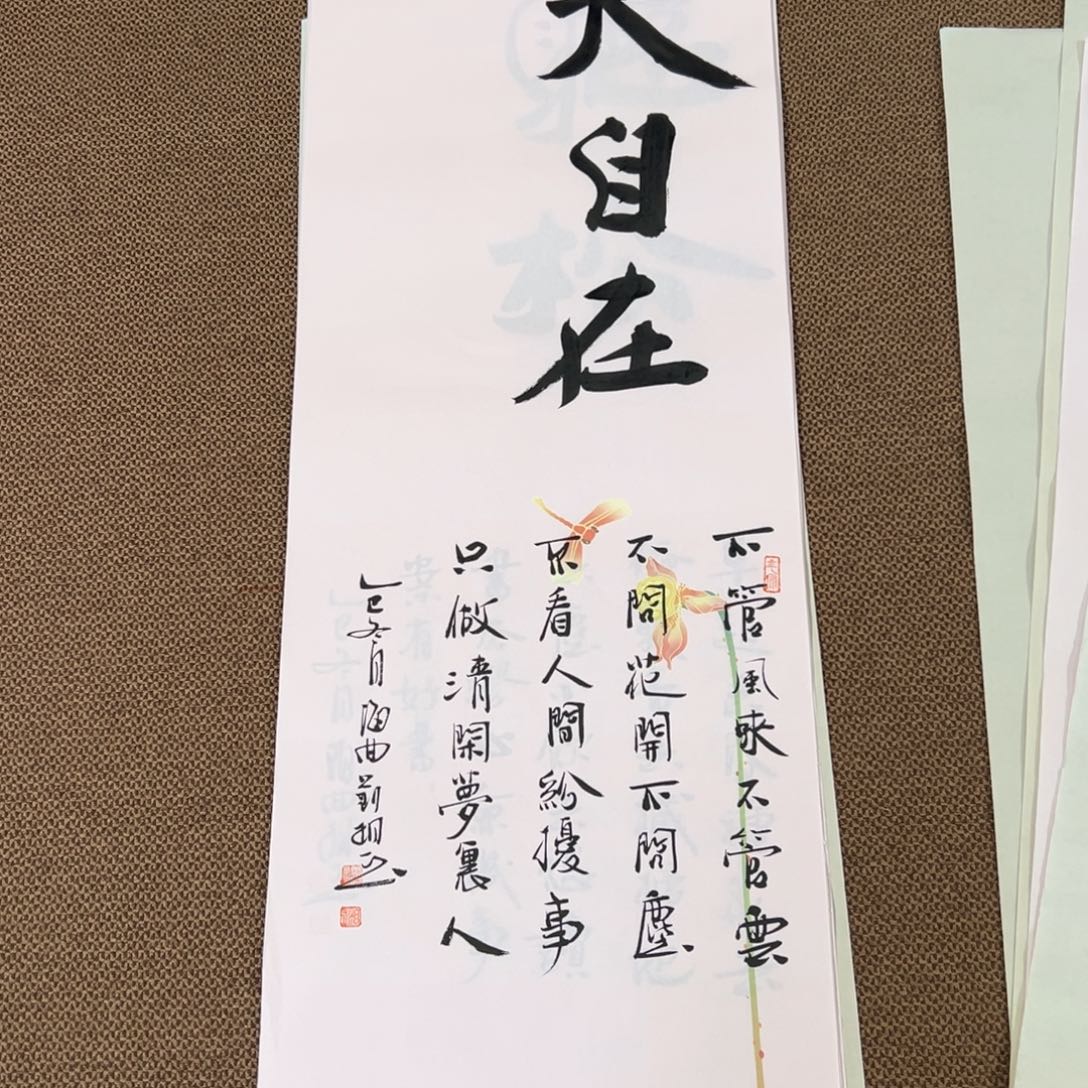 大自在
不管風來不管雲
不問花開不問塵
不看人間紛擾事
只做清閑夢裏人
乙巳冬月海曲